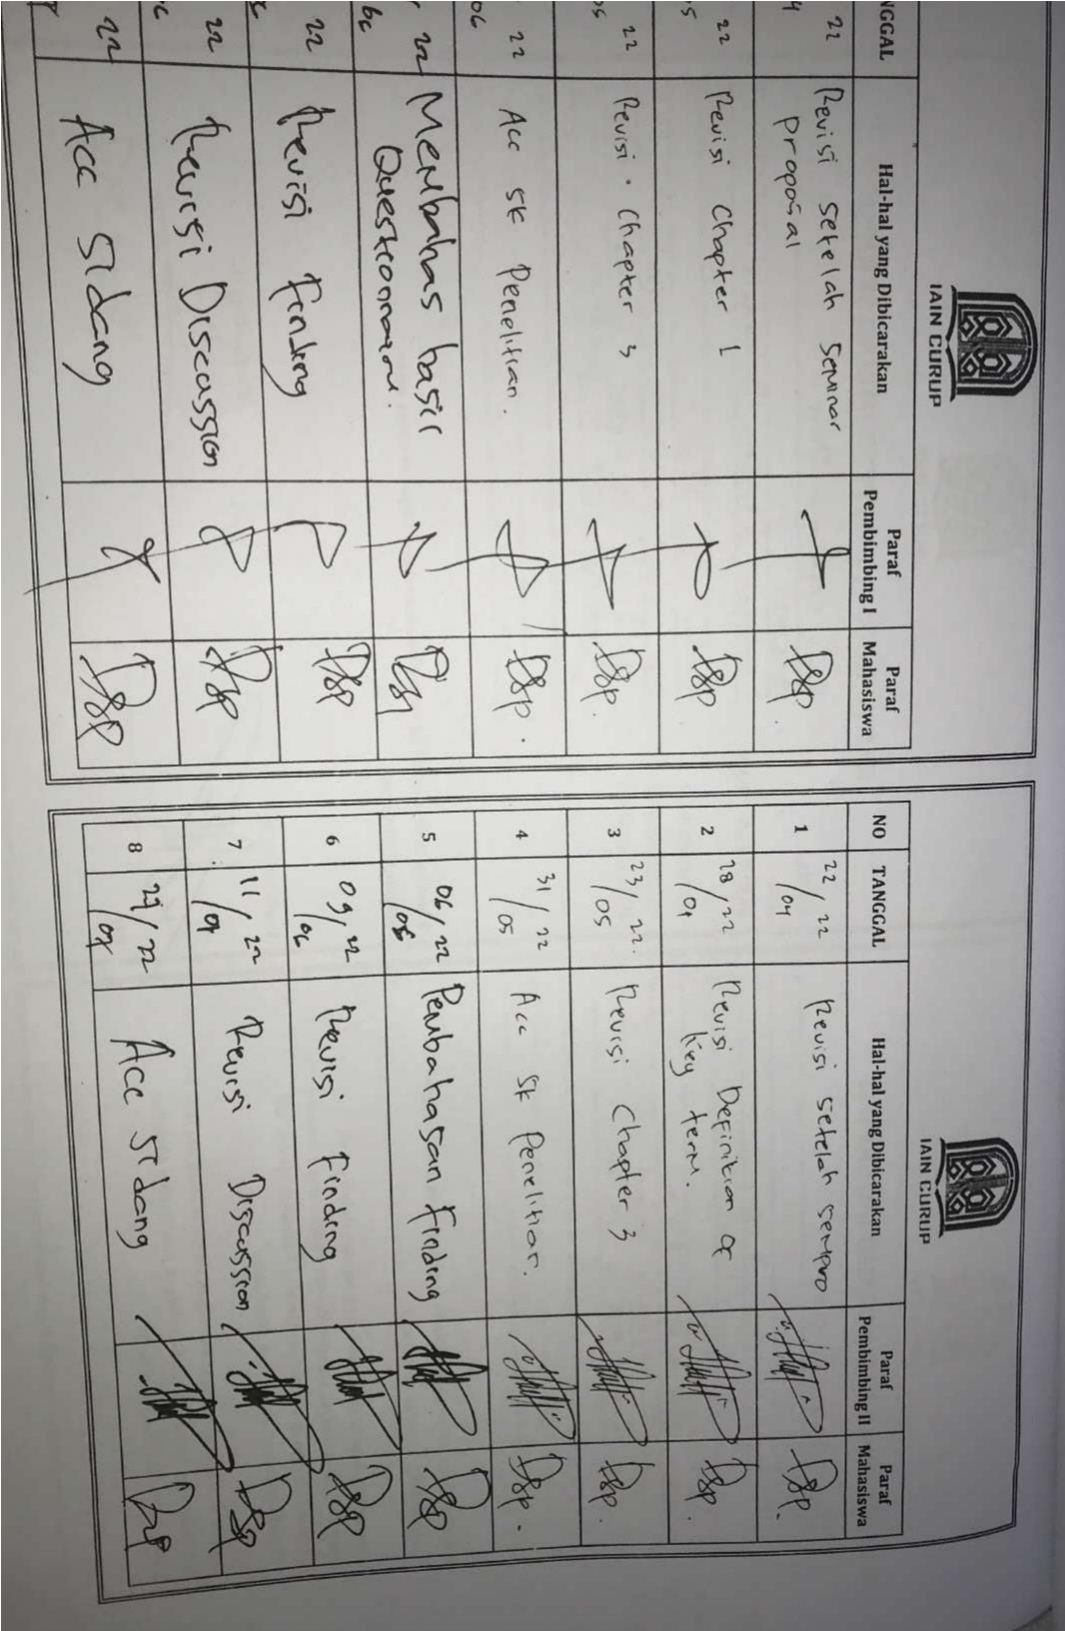 IAIN CURUP
NGGAL
Hal-hal yang Dibicarakan
Paraf
Pembimbing I
Paraf
Mahasiswa
22
Revisi setelah seminar
proposal
22
Revisi Chapter 1
22
Revisi. Chapter 3
22
Acc SK Penelitian.
22
Membahas hasil
Questionnaire.
22
Revisi Finding
22
Revisi Discussion
22
Acc Sidang
IAIN CURUP
NO
TANGGAL
Hal-hal yang Dibicarakan
Paraf
Pembimbing II
Paraf
Mahasiswa
1
22/22
/04
Revisi setelah sempro
2
/22
Revisi Definition of
key term.
3
23/22.
/05
Revisi Chapter 3
4
31/22
/05
Acc SK Penelitian.
5
06/22
Pembahasan Finding
6
09/22
/06
Revisi Finding
7
11/22
Revisi Discussion
8
/22
Acc Sidang